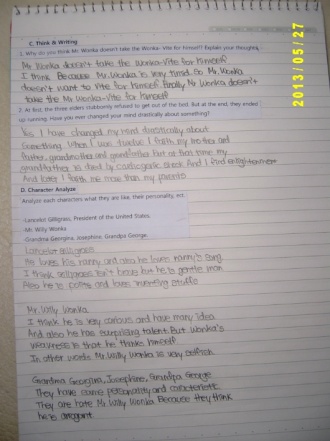 C. Think & Writing
1. Why do you think Mr. Wonka doesn't take the Wonka-Vite for himself? Explain your thoughts
Mr Wonka doesn't take the Wonka-Vite for himself
I think Because Mr. Wonka is very tired. So Mr. Wonka
doesn't want to Vite for himself. Finally Mr Wonka doesn't
take the Mr Wonka-Vite for himself
2. At first, the three elders stubbornly refused to get out of the bed. But at the end, they ended
up running. Have you ever changed your mind drastically about something?
Yes I have changed my mind drastically about
something. When I was twelve I faith my mother and
father, grandmother and grandfather But at that time my
grandfather is dead by cardiogenic shock And I
And later I faith me more than my parents
D. Character Analyze
Analyze each characters what they are like, their personality, ect
-Lancelot Gilligrass, President of the United States.
-Mr. Willy Wonka
-Grandma Georgina, Josephine, Grandpa George
Lancelot Gilligrass
He loves his nanny and also he loves nanny's song
I think Gilligrass isn't brave but he is gentle man
Also he is polite and loves inventing stuffs
Mr. Willy Wonka
I think he is very curious and have many idea
And also he has surprising talent. But Wonka's
weakness is that he thinks himself
In other words Mr. Willy Wonka is very selfish
Grandma Georgina, Josephine, Grandpa George
They have same personality and
They are hate Mr Willy Wonka Because they think
he is arrogant.
2013/05/27